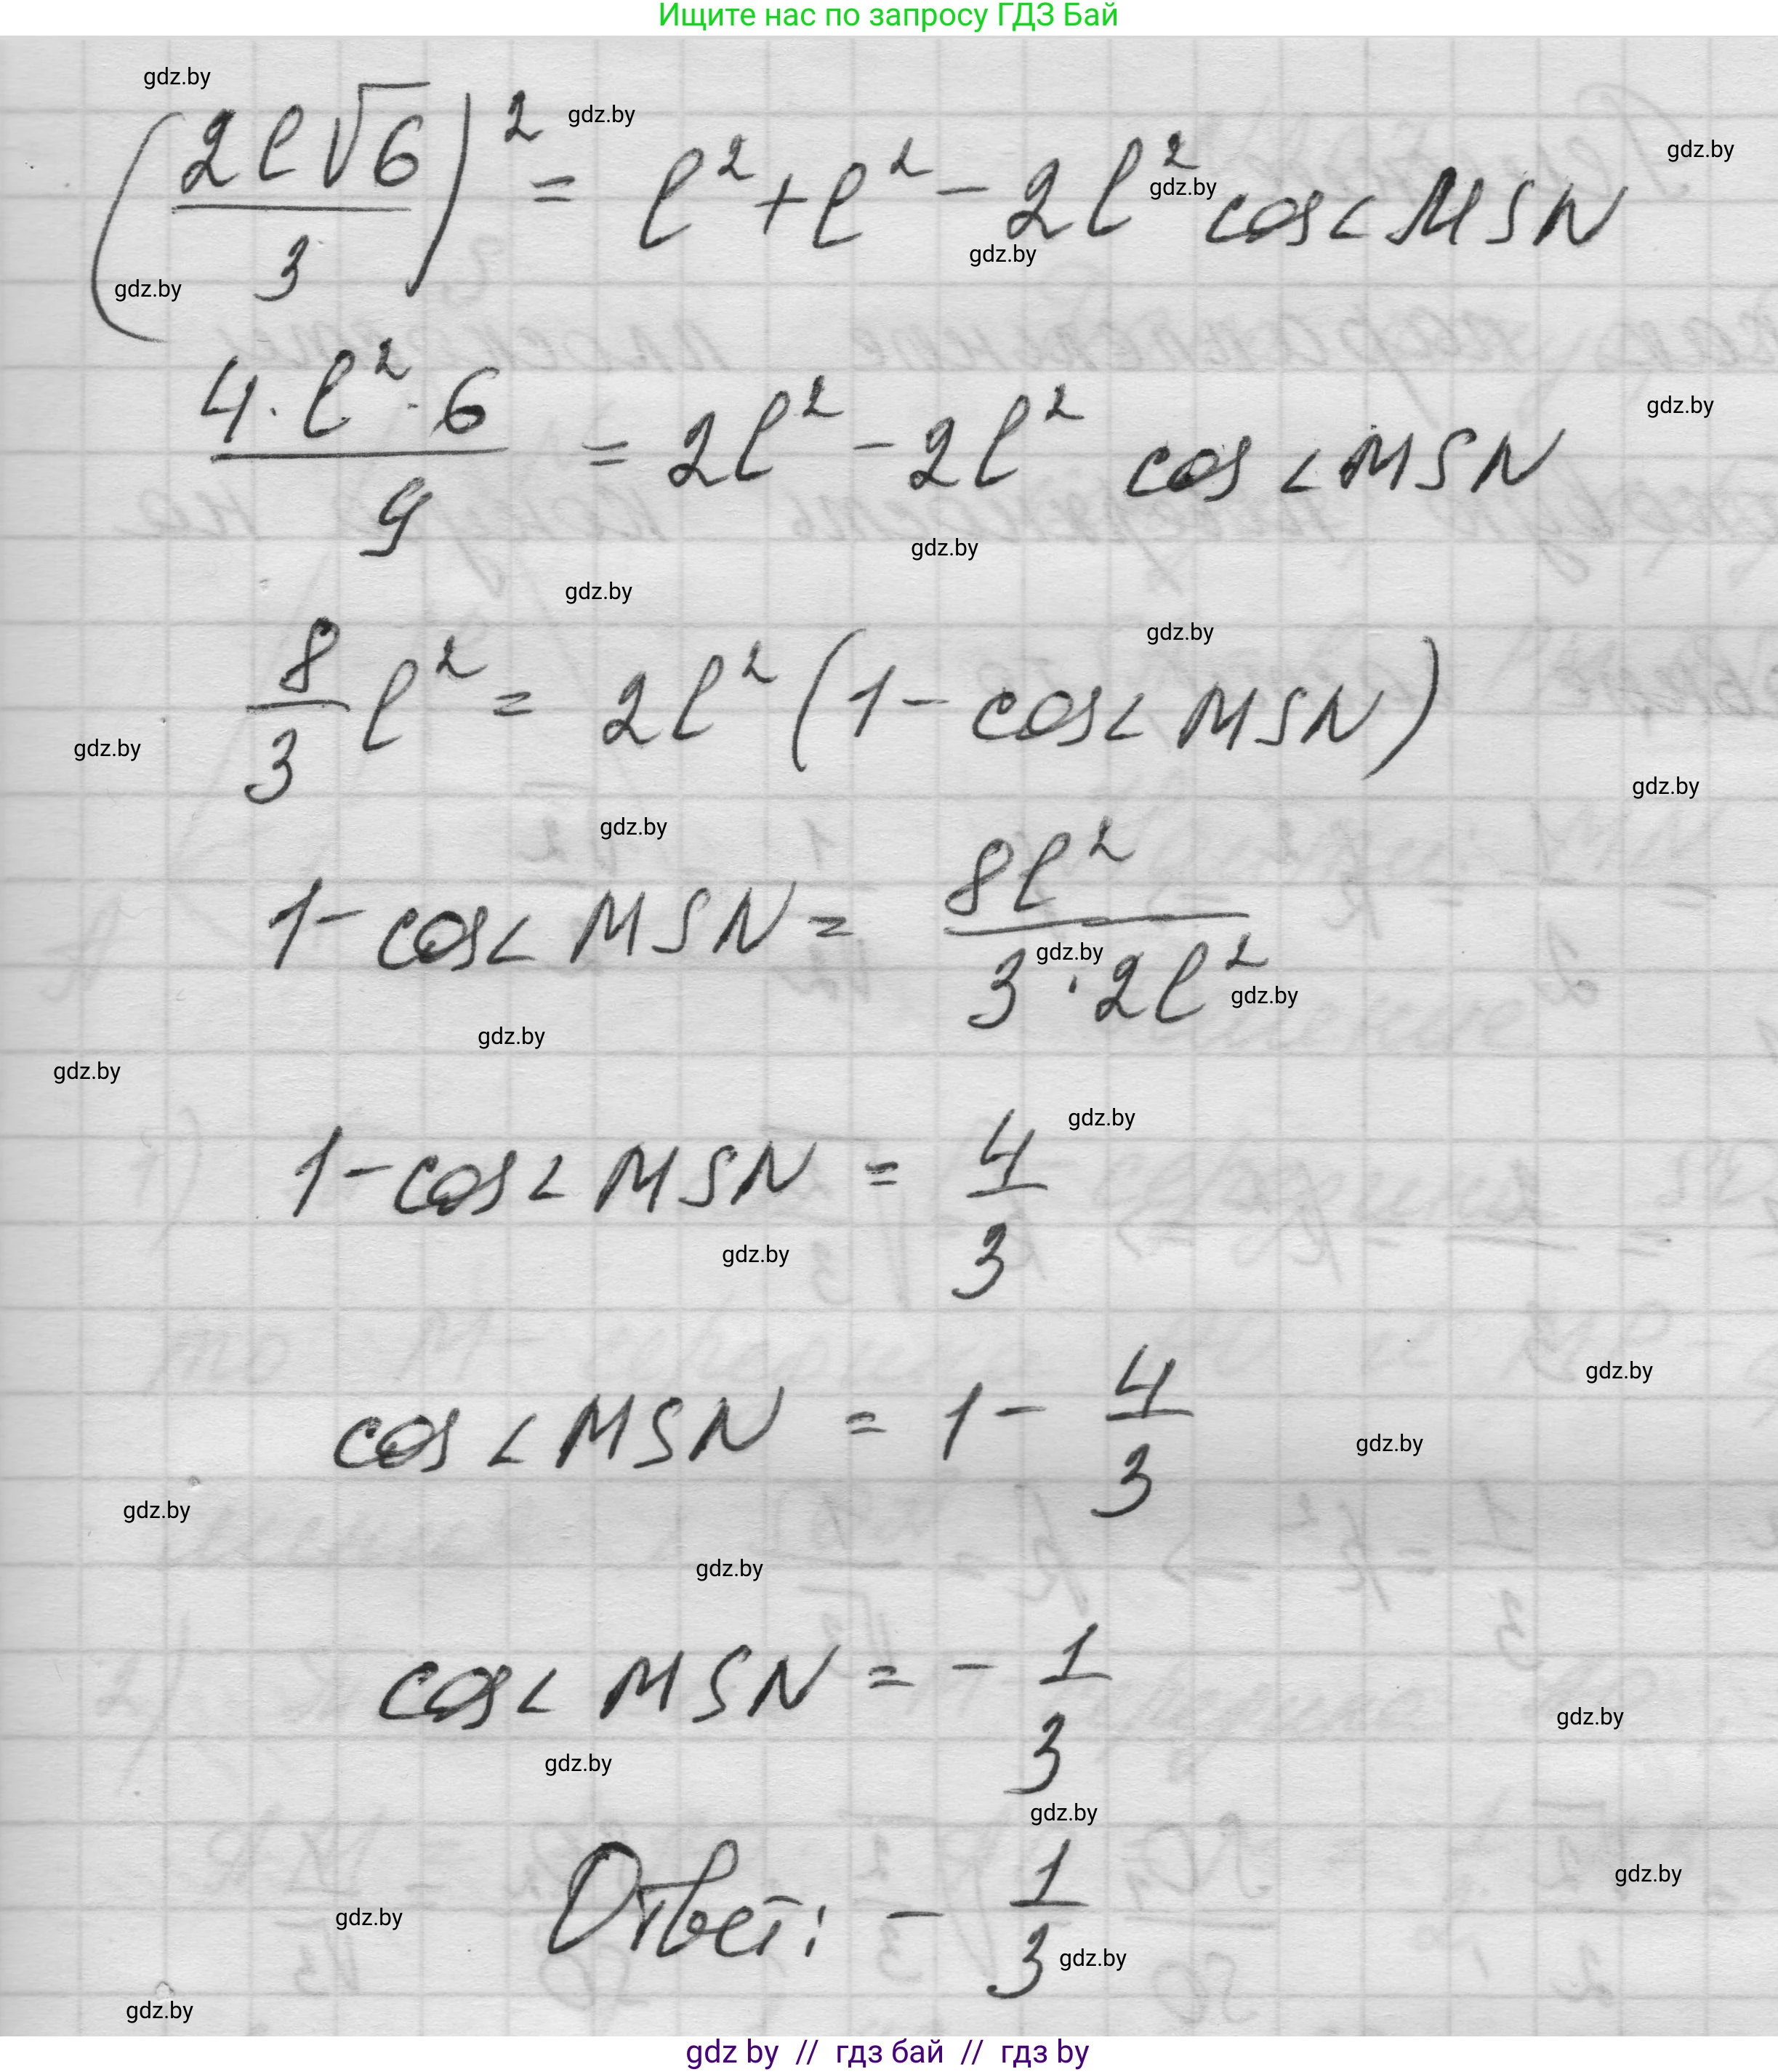 Ищите нас по запросу ГДЗ Бай
gdz.by
gdz.by
gdz.by
(2l√6/3)² = l² + l² - 2l² cos∠MSN
gdz.by
gdz.by
gdz.by
gdz.by
4·l²·6/9 = 2l² - 2l² cos∠MSN
gdz.by
gdz.by
gdz.by
8/3 l² = 2l²(1 - cos∠MSN)
gdz.by
gdz.by
gdz.by
1 - cos∠MSN = 8l²/3·2l²
gdz.by
gdz.by
gdz.by
gdz.by
gdz.by
1 - cos∠MSN = 4/3
gdz.by
gdz.by
cos∠MSN = 1 - 4/3
gdz.by
gdz.by
gdz.by
cos∠MSN = - 1/3
gdz.by
gdz.by
gdz.by
gdz.by
Ответ: - 1/3
gdz.by
gdz.by
gdz.by
gdz by // гдз бай // гдз by